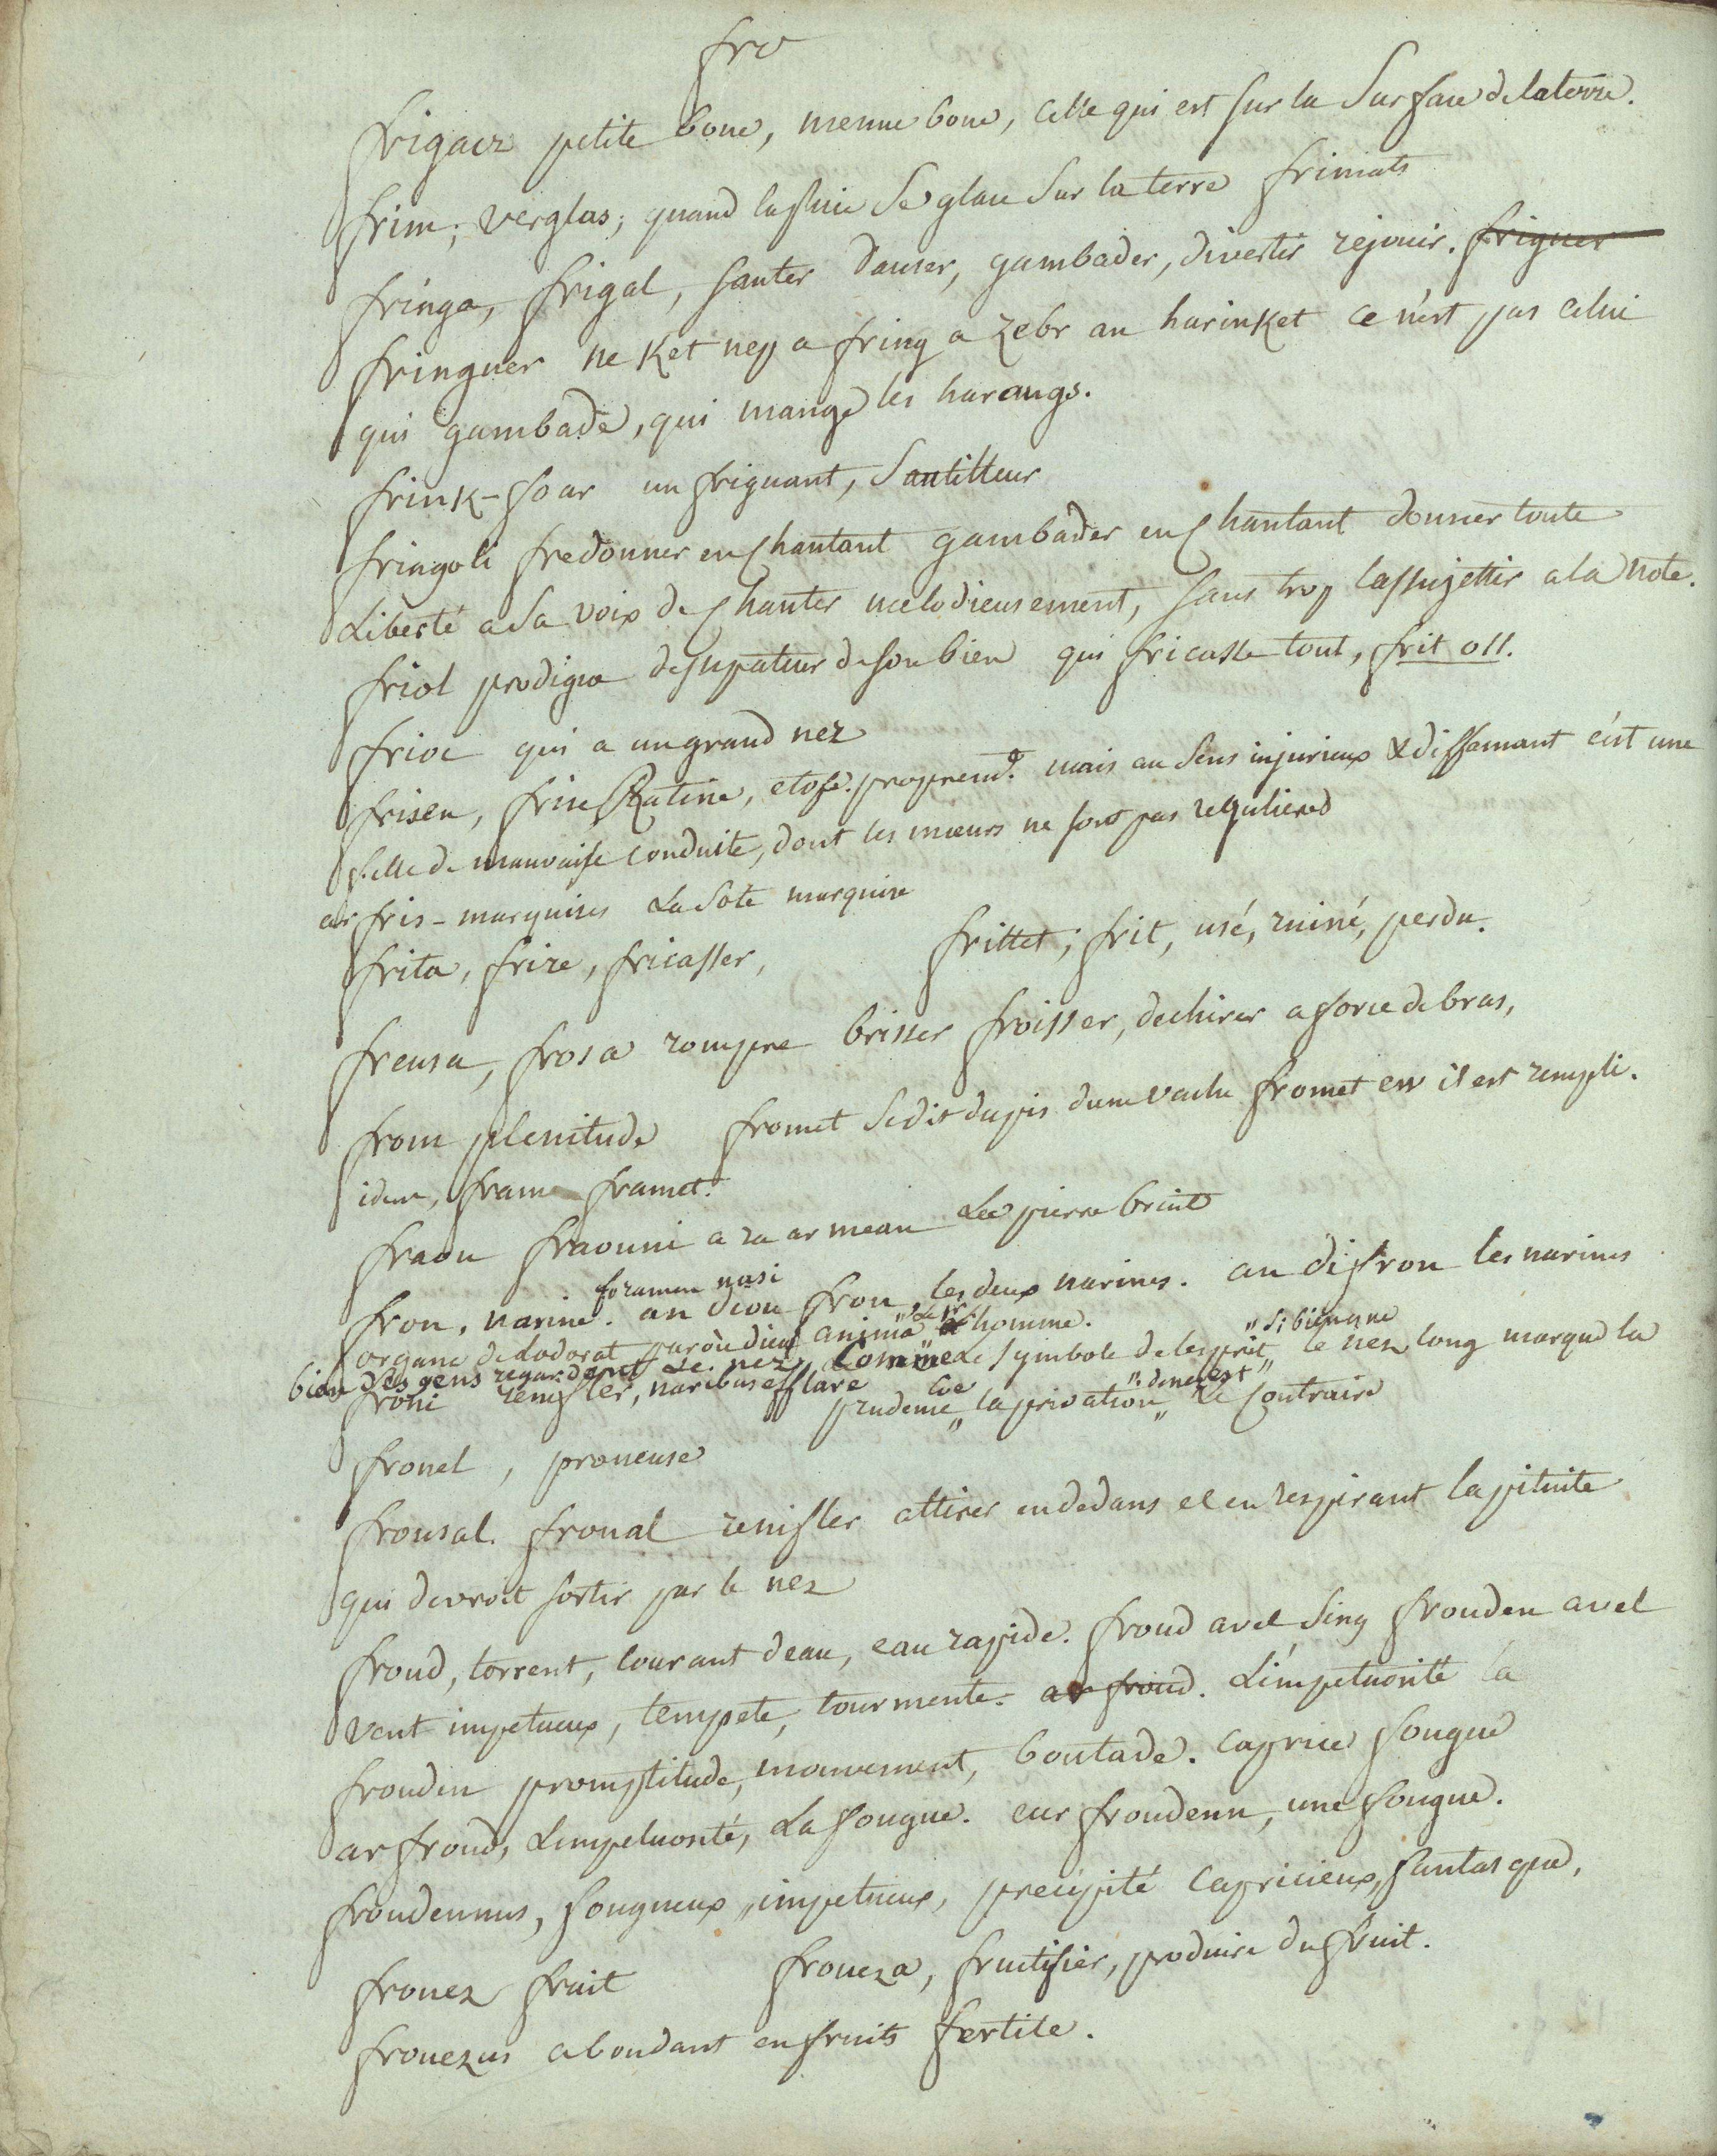 fro
frigacz petite boue, menue boue, celle qui est sur la surface de la terre.
frim; verglas; quand la pluie se glace sur la terre frimats
fringa, frigal, sauter danser, gambader, divertir rejouir. friguer
fringuer ne Ket nep a fring a zebr an harinKet ce n'est pas celui
qui gambade, qui mange les harangs.
frinK-foar un friguant, Sautilleur
fringoli fredonner en chantant gambader en chantant donner toute
Liberté a sa voix de chanter melodieusement, sans trop l'assujettir a la note.
friol prodigue dissipateur de son bien qui fricasse tout, frit oll.
frioc qui a un grand nez
frisen, frise Ratine, etofe. propremt. mais au sens injurieux & diffamant c'est une
fille de mauvaise conduite, dont les mœurs ne sont pas regulieres
ar fris-marquises La sote marquise
frita, frire, fricasser, frittet; frit, usé, ruiné, perdu.
freusa, frosa rompre brisser froisser, dechirer a force de bras,
from plenitude fromet se dit du pis d'une vache fromet eo il est rempli.
idem, fram framet.
fraou fraouni a ra ar mean La pierre bruit
foramen nasi
fron, narine. an diou fron, les deux narines. an difron les narines
organe de l'odorat par où dieu anima le pr. homme. "si bien que
bien des gens regardent Le nez, Comme Le symbole de l'esprit" le nez long marque la
froni renifler, naribus efflare prudence "la privation" de nez est" le contraire
fronel, proneuse
fronsal. fronal renifler attirer en dedans et en respirant la pituite
qui devroit sortir par le nez
froud, torrent, courant d'eau, eau rapide. froud avel sing frouden avel
vent impetueux, tempete, tourmente. ar froud. L'impetuosité la
frouden promptitude, mouvement, boutade. caprice fougue
ar froud, L'impetuosité, La fougue. eur froudenn, une fougue.
froudennus, fougueux, impetueux, precipité capricieux, fantasque,
frouez fruit froueza, frutifier, produire du fruit.
frouezus abondant en fruits fertile.